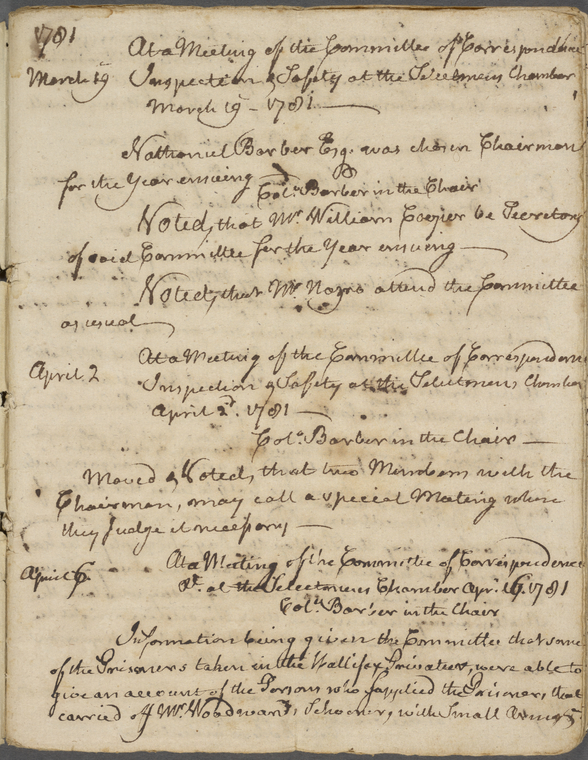 1781
At a Meeting of the Committee of Correspondence
March 19 Inspection & Safety at the Selectmens Chamber
March 19 - 1781
Nathaniel Barber Esq. was chosen Chairman
for the Year ensueing
Colo. Barber in the Chair
Voted, that Mr. William Cooper be Secretary
of said Committee for the Year ensueing
Voted, that Mr. attend the Committee
as usual
At a Meeting of the Committee of Correspondence
April 2 Inspection & Safety at the Selectmens Chamber
April 2d. 1781
Colo. Barber in the Chair
Moved & Voted, that two Members with the
Chairman, may call a special Meeting when
they judge it necessary
At a Meeting of the Committee of Correspondence
April 6 &c. at the Selectmens Chamber Apr. 6. 1781
Colo. Barber in the Chair
Information being given the Committee that some
of the Prisoners taken in the Hallifax Privateer, were able to
give an account of the Persons who supplied the Prisoners, that
carried off Mr. Woodwards Schooner, with Small Arms &